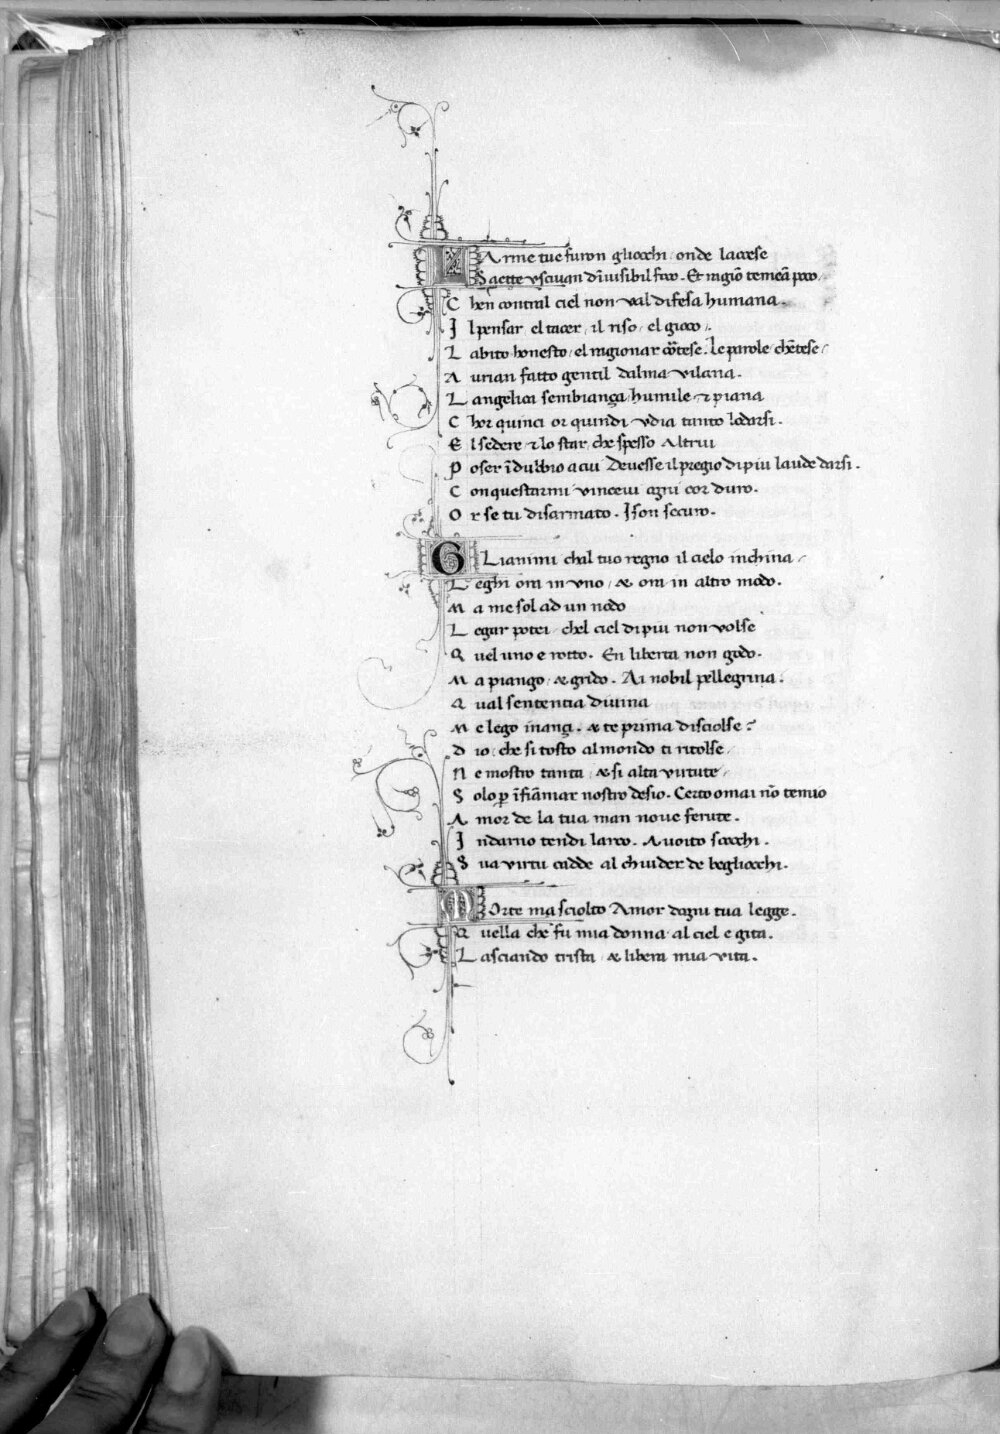 L Arme tue furon gliocchi / onde laccese
Saette usciuan dīuisibil foco. Et ragiō temeā poco /
C hen contral ciel non val difesa humana.
I l pensar / el tacer / il riso / el gioco /.
L abito honesto / el ragionar cōrtese. Le parole / chētese /
A urian fatto gentil dalma vilana.
L angelica sembiança / humile & piana
C hor quinci or quindi / vdia tanto lodarsi.
E l sedere & lo star / che spesso Altrui
P oser ī dubbio a cui Deuesse il pregio di piu laude darsi.
C on questarmi vinceui ogni cor duro.
O r se tu disarmato. I son securo.
G Lianimi chal tuo regno il cielo inchina /
L eghi ora in vno / & ora in altro modo.
M a me sol ad un nodo
L egar potei / chel ciel di piu non volse
Q uel uno e rotto. En liberta non godo.
M a piango / & grido. Ai nobil pellegrina.
Q ual sententia diuina
M e lego inançi / & te prima disciolse ?
D io / che si tosto al mondo ti ritolse /
N e mostro tanta / & si alta virtute /
S olo p īfiāmar nostro desio. Certo omai nō temio
A mor de la tua man noue ferute.
I ndarno tendi larco. A voito scocchi.
S ua virtu cadde al chiuder de begliocchi.
M Orte ma sciolto Amor dogni tua legge.
Q uella che fu mia donna al ciel e gita.
L asciando trista & libera mia vita.